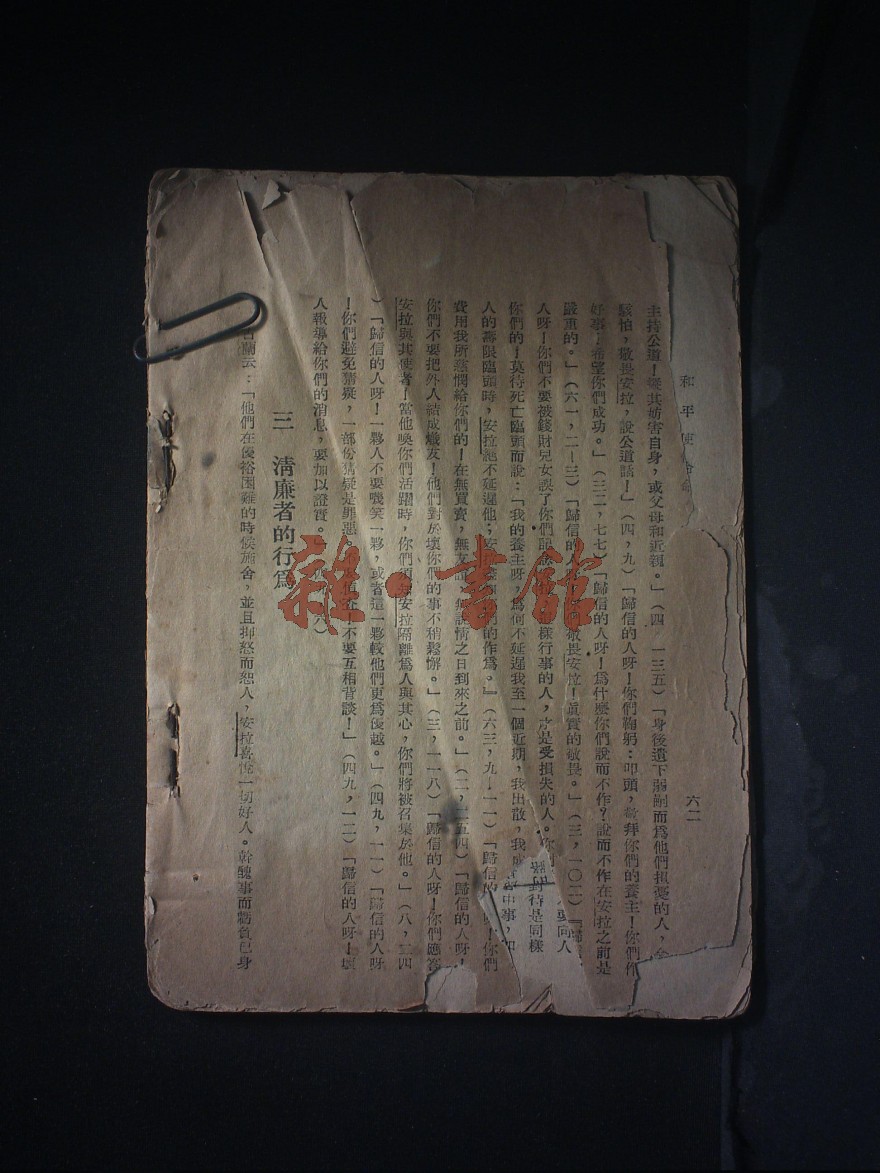 和平使
六二
主持公道！縱其妨害自身，或父母和近親。」（四，一三五）「身後遺下弱嗣而為他們担憂的人，
駭怕，敬畏安拉，說公道話！」（四，九）「歸信的人呀！你們鞠躬；叩頭，敬拜你們的養主！你們作
好事！希望你們成功。」（二二，七七）「歸信的人呀！為什麼你們說而不作？說而不作在安拉之前是
嚴重的。」（六一，二－三）「歸信的人 敬畏安拉！眞實的敬畏。」（三，一〇二）「歸信
人呀！你們不要被錢財兒女誤了你們記念 樣行事的人，才是受損失的人。你們 要向人
你們的！莫待死亡臨頭而說：「我的養主呀，為何不延遲我至一個近期，我出散，我成 對待是同樣
人的壽限臨頭時，安拉絕不延遲他；安 們的作為。」（六三，九－一一）「歸信的 ！你們
費用我所慈憫給你們的！在無買賣，無友誼，無說情之日到來之前。」（二，二五四）「歸信的人呀！
你們不要把外人結成熾友！他們對於壞你們的事不稍鬆懈。」（三，一一八）「歸信的人呀！你們應答
安拉與其使者！當他喚你們活躍時，你們須知安拉隔離為人與其心，你們將被召集於他。」（八，二四
）「歸信的人呀！一夥人不要嘰笑一夥，或者這一夥較他們更為優越。」（四九，一一）「歸信的人呀
！你們避免猜疑，一部份猜疑是罪惡。 不要互相背談！」（四九，一二）「歸信的人呀！壞
人報導給你們的消息，要加以證實。」 六）
三 清廉者的行為
古蘭云：「他們在優裕困難的時候施舍，並且抑怒而恕人，安拉喜悅一切好人。幹醜事而虧負己身
雜·書館